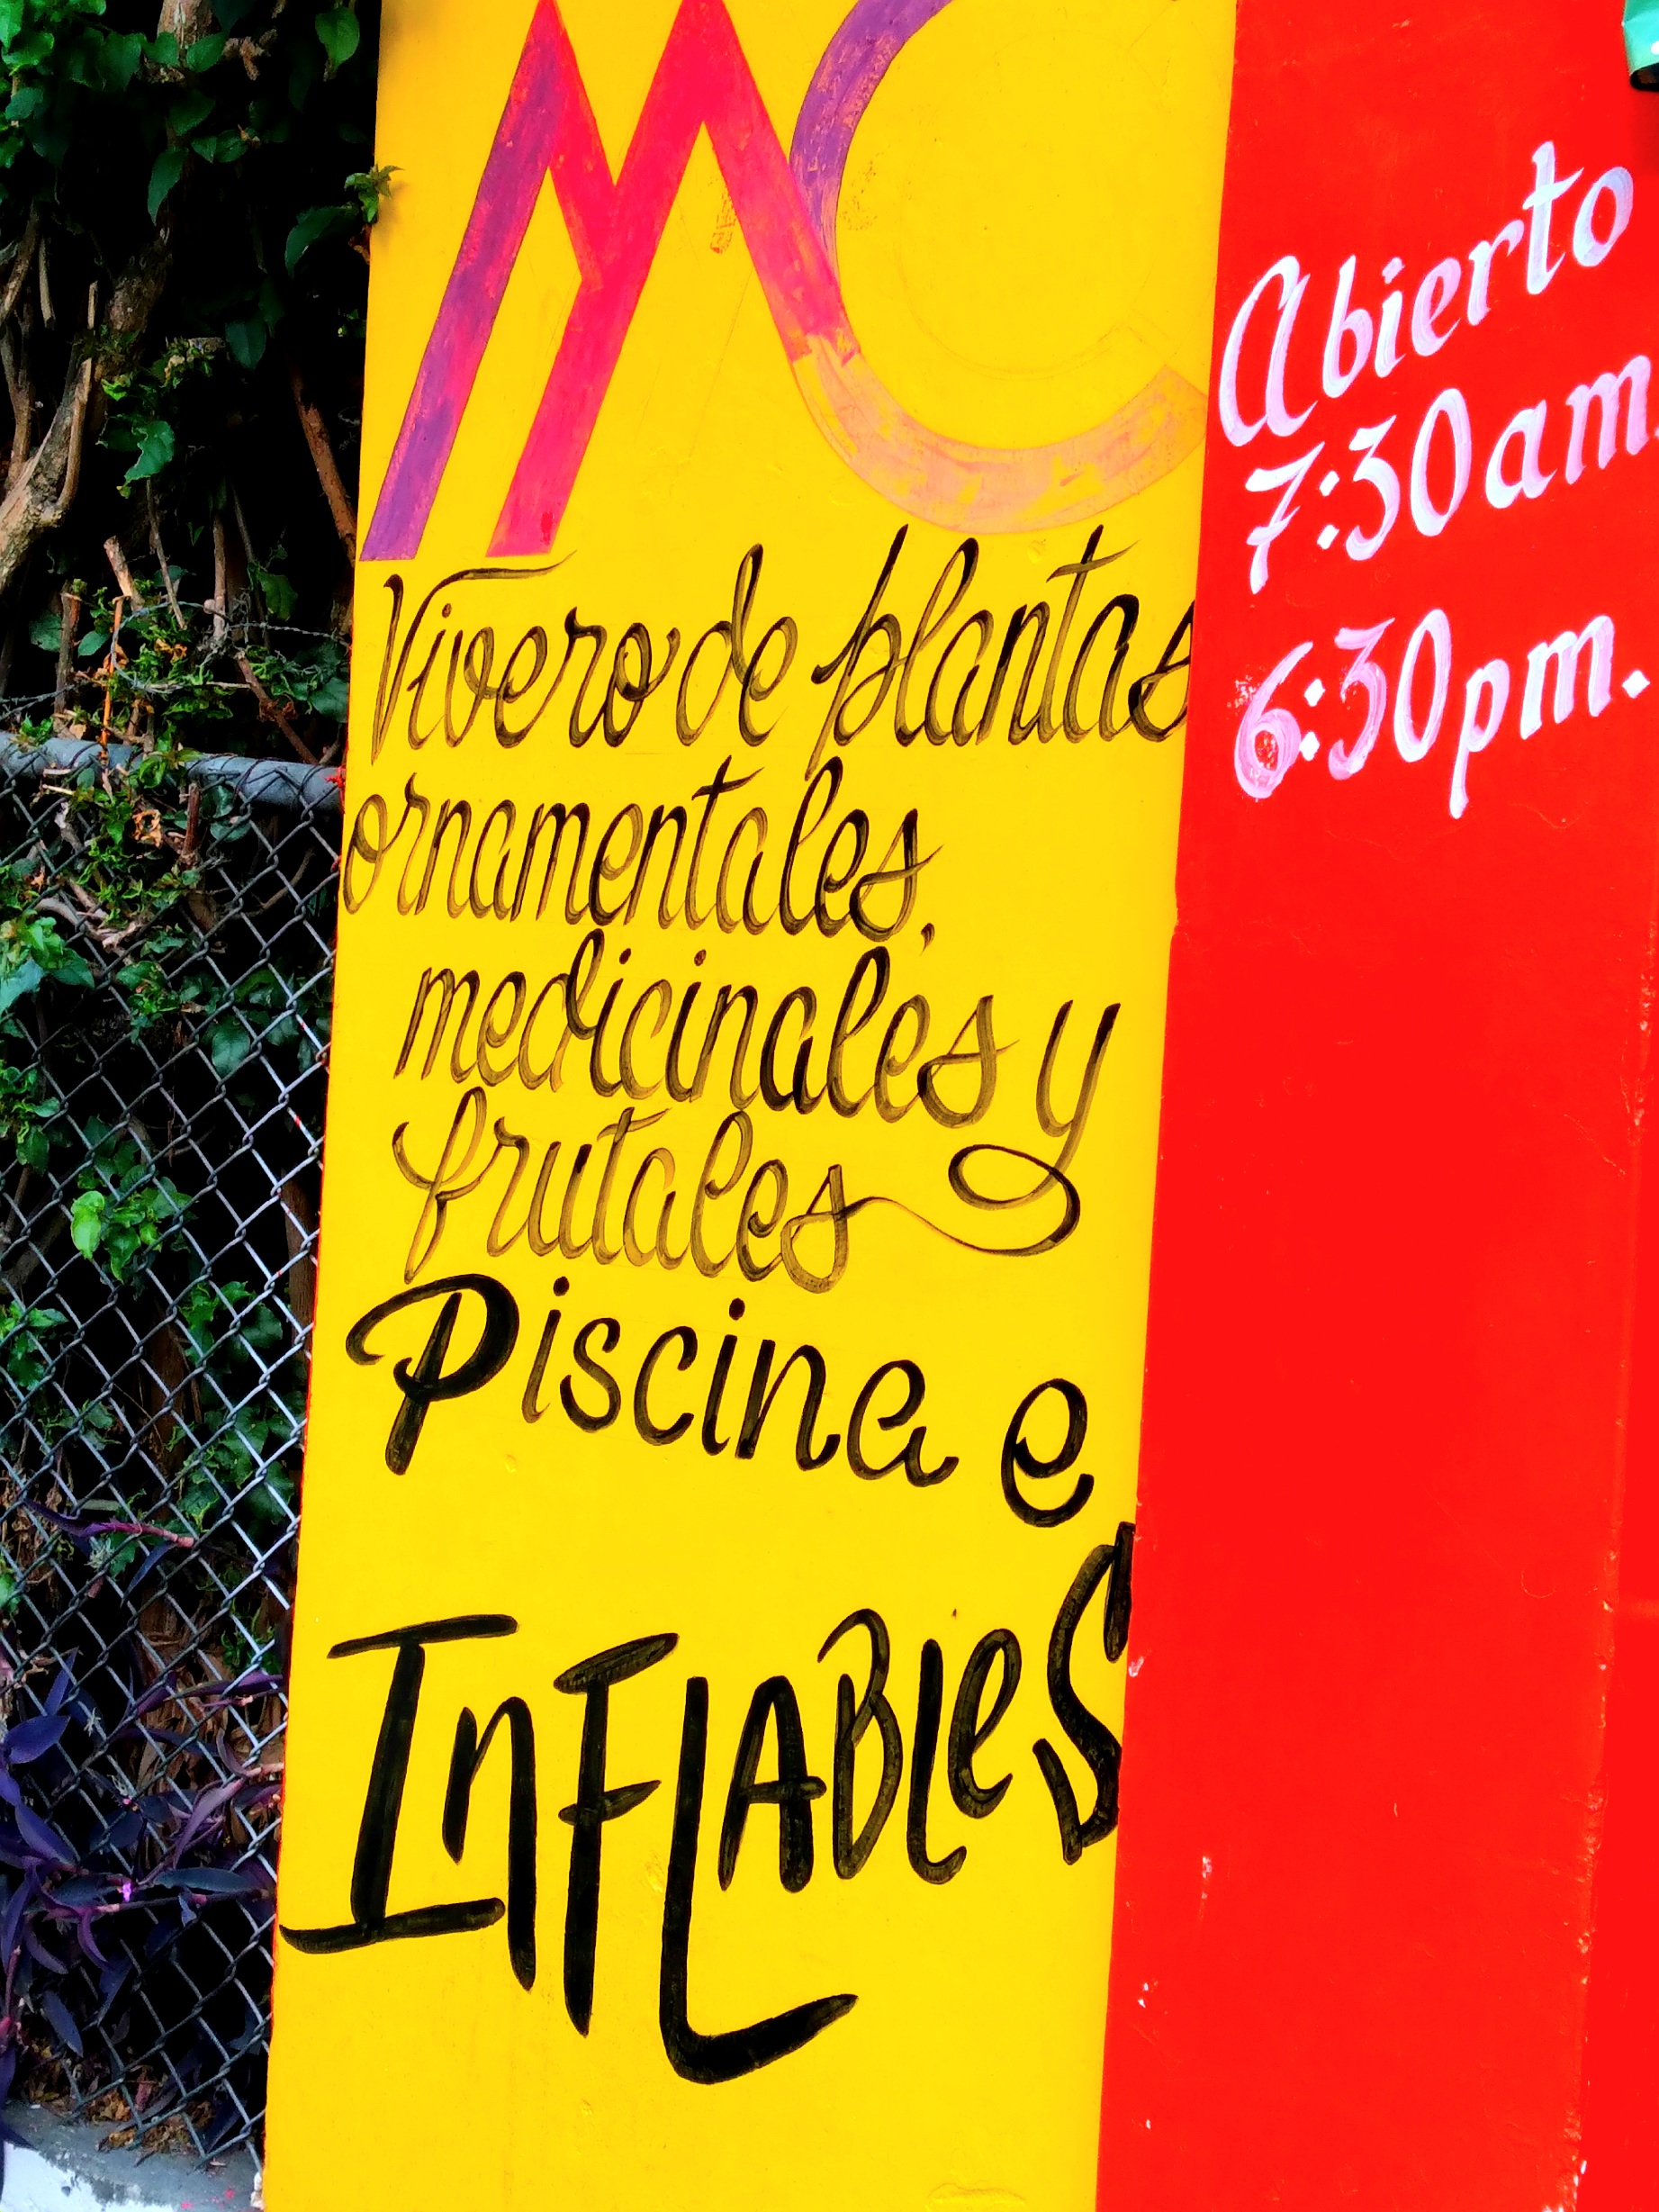 MC
Vivero de plantas
ornamentales,
medicinales y
frutales
Piscina e
InFLABleS
Abierto
7:30am.
6:30pm.